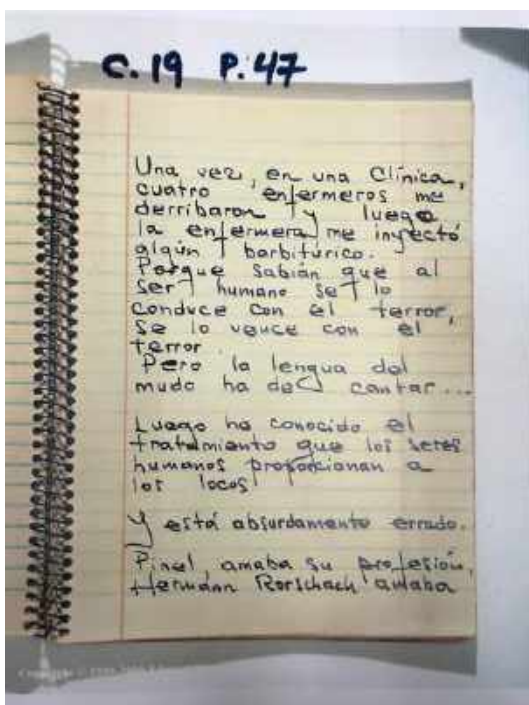 C. 19 P. 47
Una vez, en una Clínica,
cuatro enfermeros me
derribaron y luego
la enfermera me inyectó
algún barbitúrico.
Porque sabían que al
ser humano se lo
conduce con el terror,
se lo vence con el
terror.
Pero la lengua del
mudo ha de cantar...
Luego he conocido el
tratamiento que los seres
humanos proporcionan a
los locos
y está absurdamente errado.
Pinel, amaba su profesión,
Hermann Rorschach amaba
Copyright ©